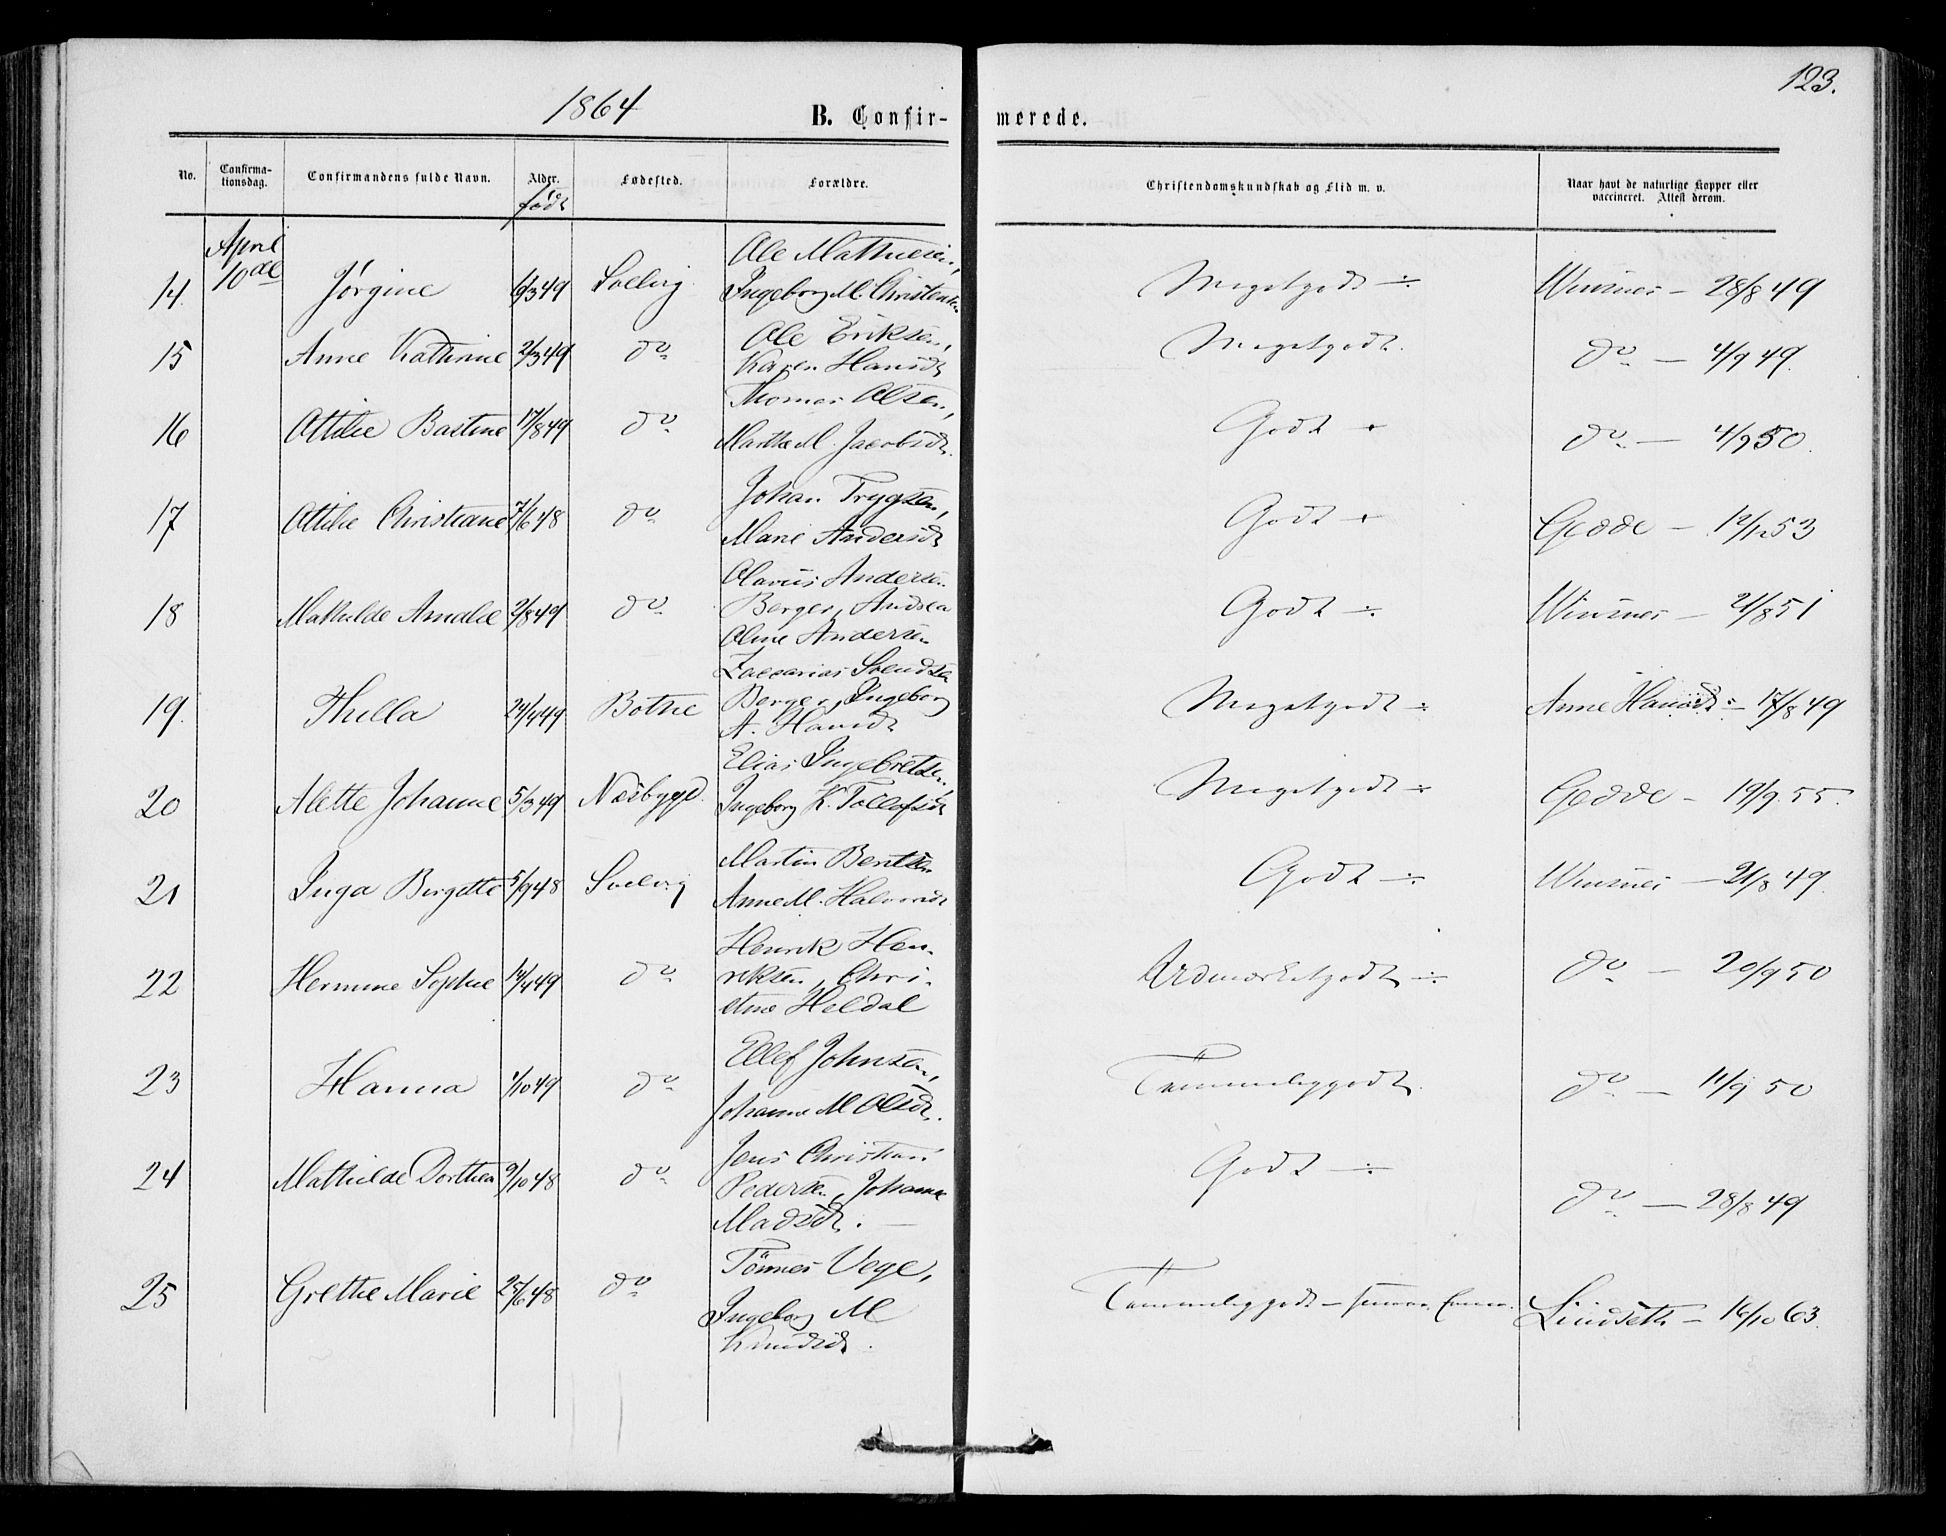 1864
123.
B. Confir-
merede.
No.
Confirma-
tionsdag.
Confirmandens fulde Navn.
Alder.
født
Fødested.
Forældre.
Christendomskundskab og Flid m. v.
Naar havt de naturlige Kopper eller
vaccineret. Attest derom.
April
10de
14 Jørgine 6/3 49 Solvig Ole Mathiesen,
Ingeborg M. Christensen
Megetgodt ÷ Winsnes – 28/8 49
15 Anne Kathrine 2/3 49 do Ole Eriksen,
Karen Hansdt
Megetgodt. do – 4/9 49.
16 Attilie Bastine 17/8 49 do Thomas Olsen,
Marthe M. Jacobsdt.
Godt ÷ do – 4/9 50.
17 Attilie Christiane 7/6 48 do Johan Trygsen,
Marie Andersdt
Godt ÷ Gedde – 12/12 53
18 Mathilde Amalie 2/8 49 do Olavus Andersen
Berger, Andrea
Oline Andersen
Godt ÷ Winsnes – 21/8 51
19. Thilla 24/4 49 Botne Zaccarias Svendsen
Berger, Ingeborg
A. Hansdt
Megetgodt ÷ Anne Hansdt – 17/8 49
20 Alette Johanne 5/3 49 Nesbygd. Elias Ingebretsen,
Ingeborg K. Tollofsdt
Megetgodt ÷ Gedde – 19/9. 55.
21 Inga Birgitte 5/9 48 Solvig Martin Bentsen
Anne M. Halvorsdt
Godt ÷ Winsnes – 21/8 49.
22 Hermine Sophie 14/4 49 do Henrik Hen-
riksen, Chri-
stine Heldal
Udmærketgodt ÷ do – 20/9 50
23 Hanna 1/10 49 do Ellef Johnsen,
Johanne M Olsdt.
Temmeliggodt. do – 11/9 50
24 Mathilde Dorthea 9/10 48 do Jens Christian
Pedersen, Johanne
Madsdt. –
Godt ÷ do – 28/8 49
25 Grethe Marie 25/6 48 do Tönnes Vege,
Ingeborg M
Knudsdt.
Temmeliggodt – Lindseth – 16/10 63.